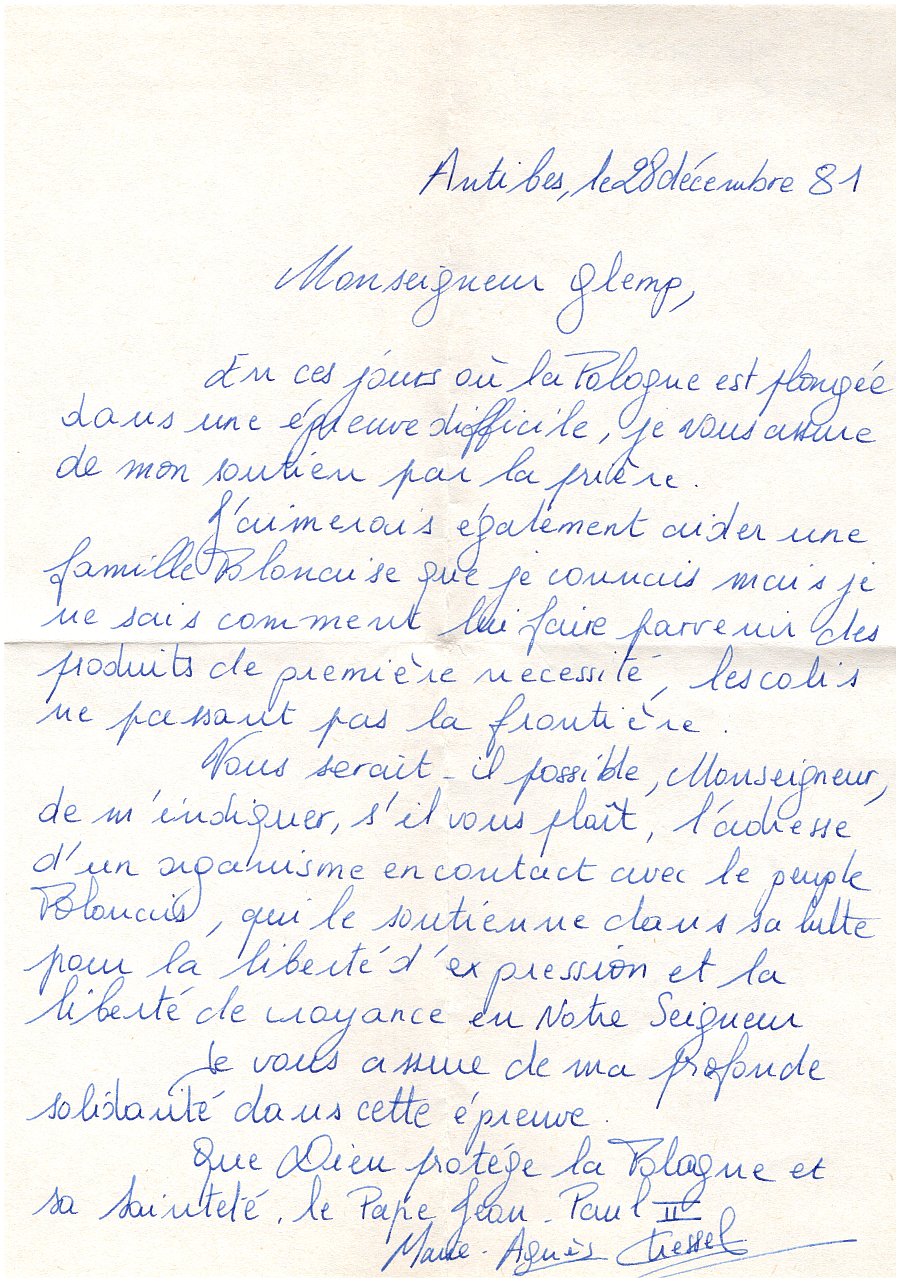 Antibes, le 28 décembre 81
Monseigneur Glemp,
En ces jours où la Pologne est plongée
dans une épreuve difficile, je vous assure
de mon soutien par la prière.
J'aimerais également aider une
famille Polonaise que je connais mais je
ne sais comment lui faire parvenir des
produits de première necessité, les colis
ne passant pas la frontière.
Vous serait-il possible, Monseigneur,
de m'indiquer, s'il vous plaît, l'adresse
d'un organisme en contact avec le peuple
Polonais, qui le soutienne dans sa lutte
pour la liberté d'expression et la
liberté de croyance en Notre Seigneur
Je vous assure de ma profonde
solidarité dans cette épreuve.
Que Dieu protége la Pologne et
sa sainteté, le Pape Jean-Paul II
Marie-Agnès